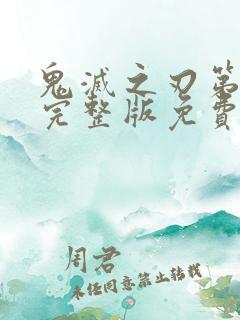 鬼滅之刃第
完整版免費
周君
未经同意禁止转载